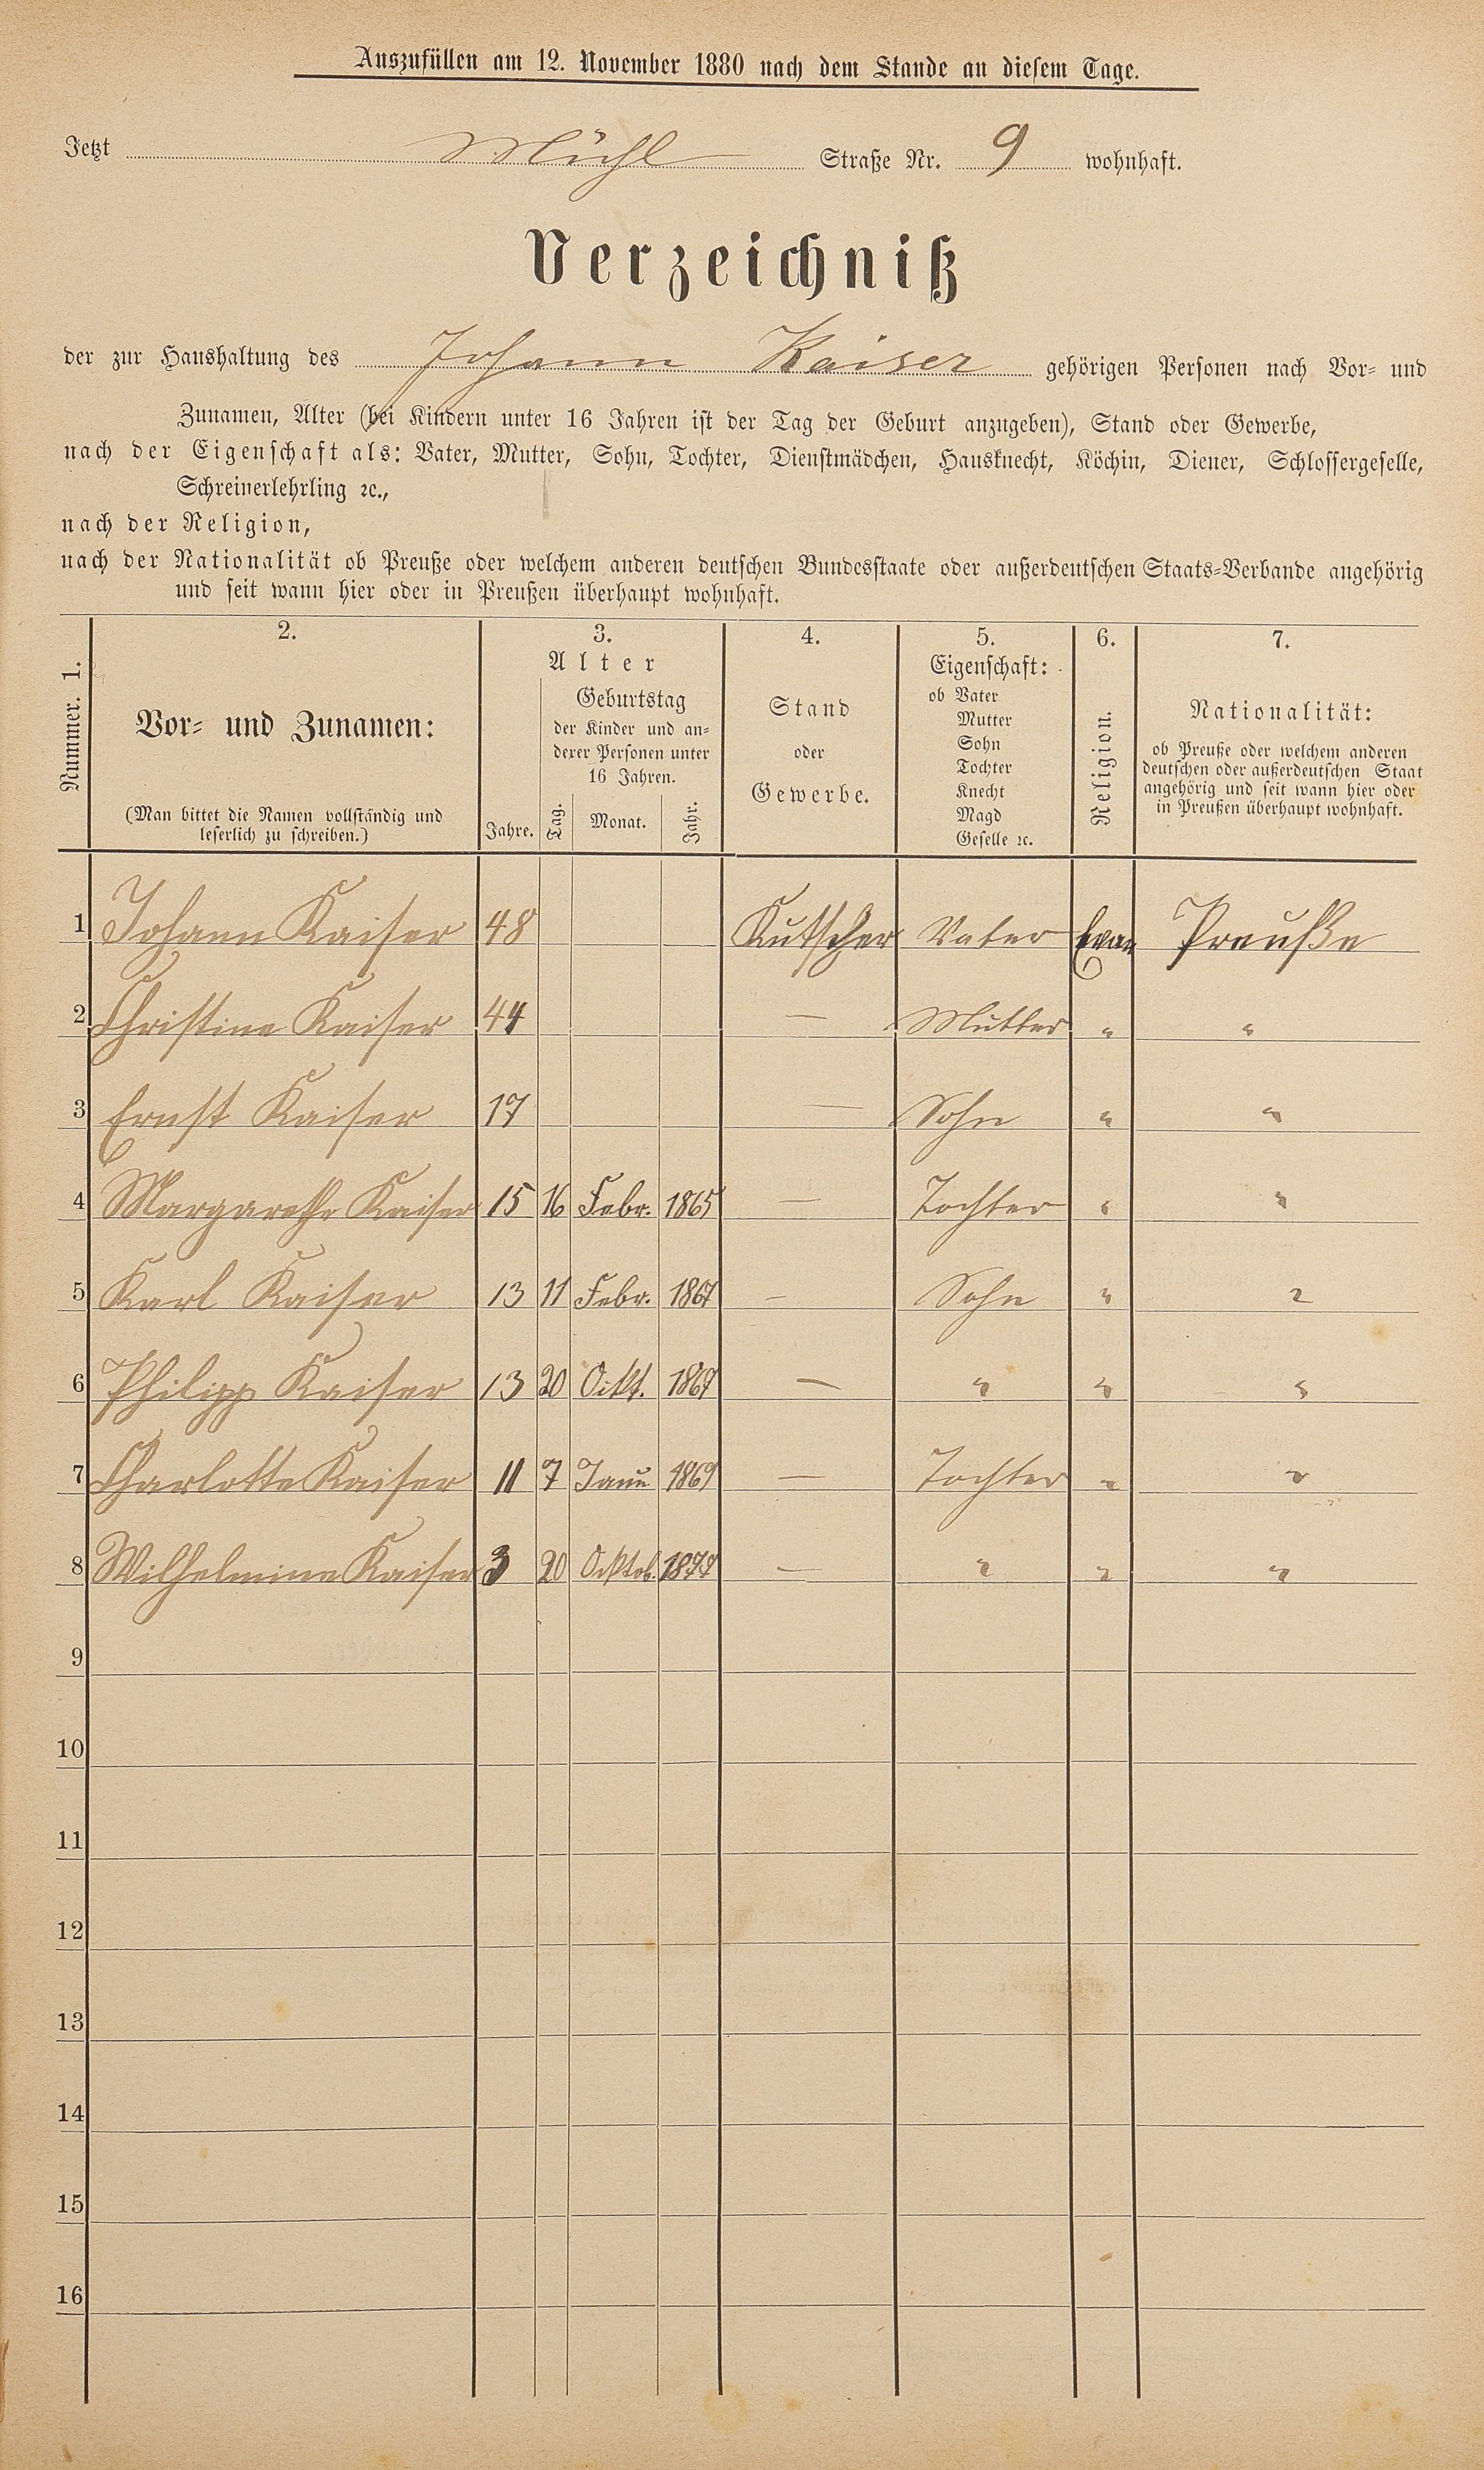 Auszufüllen am 12. November 1880 nach dem Stande an diesem Tage.
Jetzt Mühl Straße Nr. 9 wohnhaft.
Verzeichniß
der zur Haushaltung des Johann Kaiser gehörigen Personen nach Vor- und
Zunamen, Alter (bei Kindern unter 16 Jahren ist der Tag der Geburt anzugeben), Stand oder Gewerbe,
nach der Eigenschaft als: Vater, Mutter, Sohn, Tochter, Dienstmädchen, Hausknecht, Köchin, Diener, Schlossergeselle,
Schreinerlehrling ꝛc.,
nach der Religion,
nach der Nationalität ob Preuße oder welchem anderen deutschen Bundesstaate oder außerdeutschen Staats-Verbande angehörig
und seit wann hier oder in Preußen überhaupt wohnhaft.
Nummer. 1.
2.
Vor- und Zunamen:
(Man bittet die Namen vollständig und
leserlich zu schreiben.)
3.
Alter
Jahre.
Geburtstag
der Kinder und an-
derer Personen unter
16 Jahren.
Tag. Monat. Jahr.
4.
Stand
oder
Gewerbe.
5.
Eigenschaft:
ob Vater
Mutter
Sohn
Tochter
Knecht
Magd
Geselle ꝛc.
6.
Religion.
7.
Nationalität:
ob Preuße oder welchem anderen
deutschen oder außerdeutschen Staat
angehörig und seit wann hier oder
in Preußen überhaupt wohnhaft.
1 Johann Kaiser 48 Kutscher Vater Evan Preuße
2 Christine Kaiser 44 — Mutter " "
3 Ernst Kaiser 17 — Sohn " "
4 Margarethe Kaiser 15 16 Febr. 1865 — Tochter " "
5 Karl Kaiser 13 11 Febr. 1867 — Sohn " "
6 Philipp Kaiser 13 20 Oikt. 1867 — " " "
7 Charlotte Kaiser 11 7 Janu 1869 — Tochter " "
8 Wilhelmine Kaiser 3 20 Ocktob. 1877 — " " "
9
10
11
12
13
14
15
16